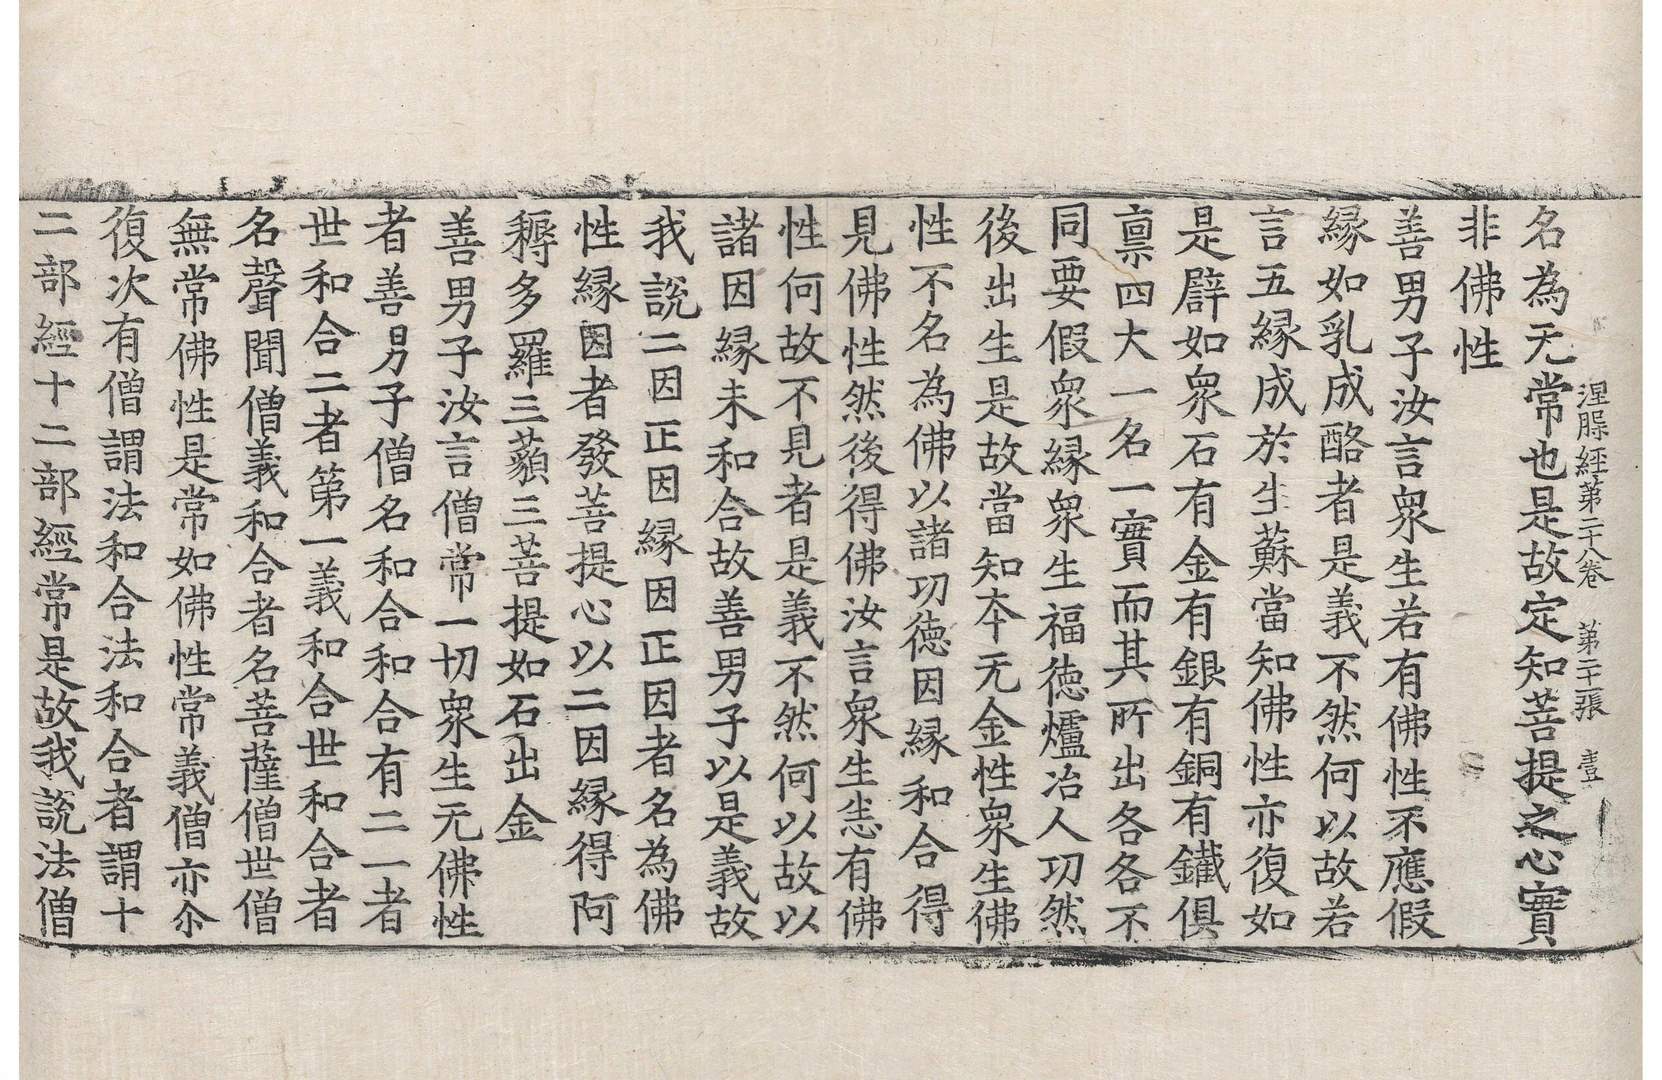 涅槃經第二十八卷　第二十二張　壹
名為无常也是故定知菩提之心實
非佛性
善男子汝言衆生若有佛性不應假
縁如乳成酪者是義不然何以故若
言五縁成於生蘇當知佛性亦復如
是譬如衆石有金有銀有銅有鐵俱
禀四大一名一實而其所出各各不
同要假衆縁衆生福徳爐冶人功然
後出生是故當知夲无金性衆生佛
性不名為佛以諸功徳因縁和合得
見佛性然後得佛汝言衆生悉有佛
性何故不見者是義不然何以故以
諸因縁未和合故善男子以是義故
我說二因正因縁因正因者名為佛
性縁因者發菩提心以二因縁得阿
耨多羅三藐三菩提如石出金
善男子汝言僧常一切衆生无佛性
者善男子僧名和合和合有二一者
世和合二者第一義和合世和合者
名聲聞僧義和合者名菩薩僧世僧
無常佛性是常如佛性常義僧亦尒
復次有僧謂法和合法和合者謂十
二部經十二部經常是故我說法僧